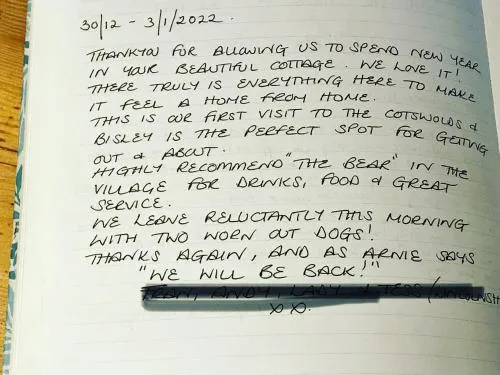 30/12 - 3/1/2022.
THANKYOU FOR ALLOWING US TO SPEND NEW YEAR
IN YOUR BEAUTIFUL COTTAGE. WE LOVE IT!
THERE TRULY IS EVERYTHING HERE TO MAKE
IT FEEL A HOME FROM HOME.
THIS IS OUR FIRST VISIT TO THE COTSWOLDS &
BISLEY IS THE PERFECT SPOT FOR GETTING
OUT & ABOUT.
HIGHLY RECOMMEND "THE BEAR" IN THE
VILLAGE FOR DRINKS, FOOD & GREAT
SERVICE.
WE LEAVE RELUCTANTLY THIS MORNING
WITH TWO WORN OUT DOGS!
THANKS AGAIN, AND AS ARNIE SAYS
"WE WILL BE BACK!"
XX.